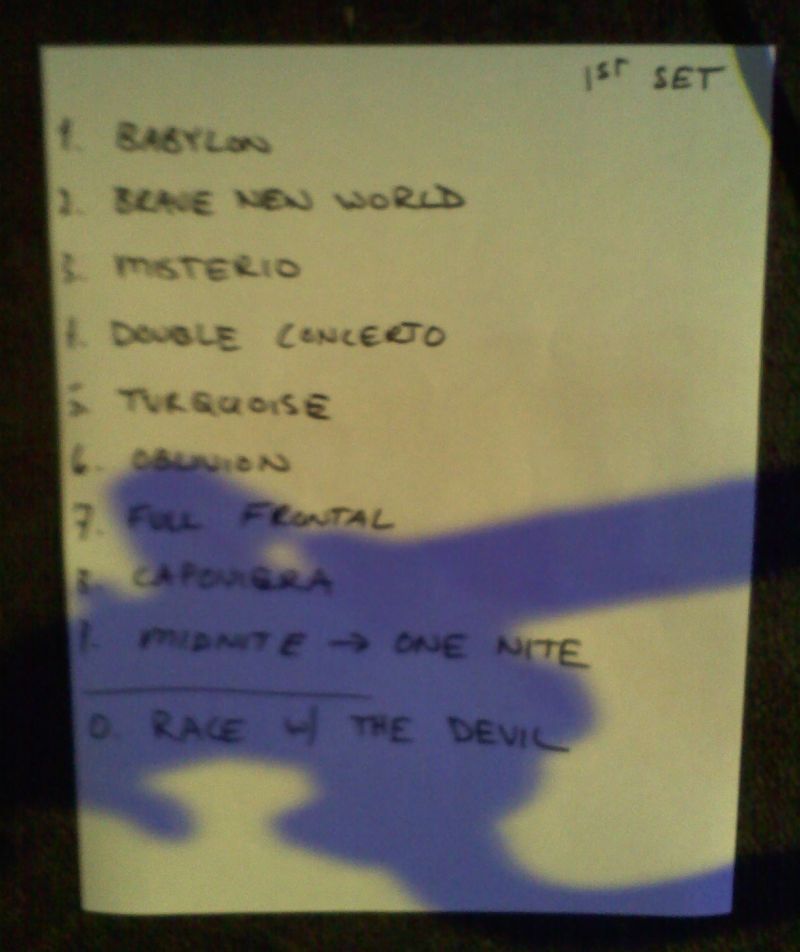 1ST SET
1. BABYLON
2. BRAVE NEW WORLD
3. MISTERIO
4. DOUBLE CONCERTO
5. TURQUOISE
6. OBLIVION
7. FULL FRONTAL
8.
9. MIDNITE → ONE NITE
0. RACE W/ THE DEVIL